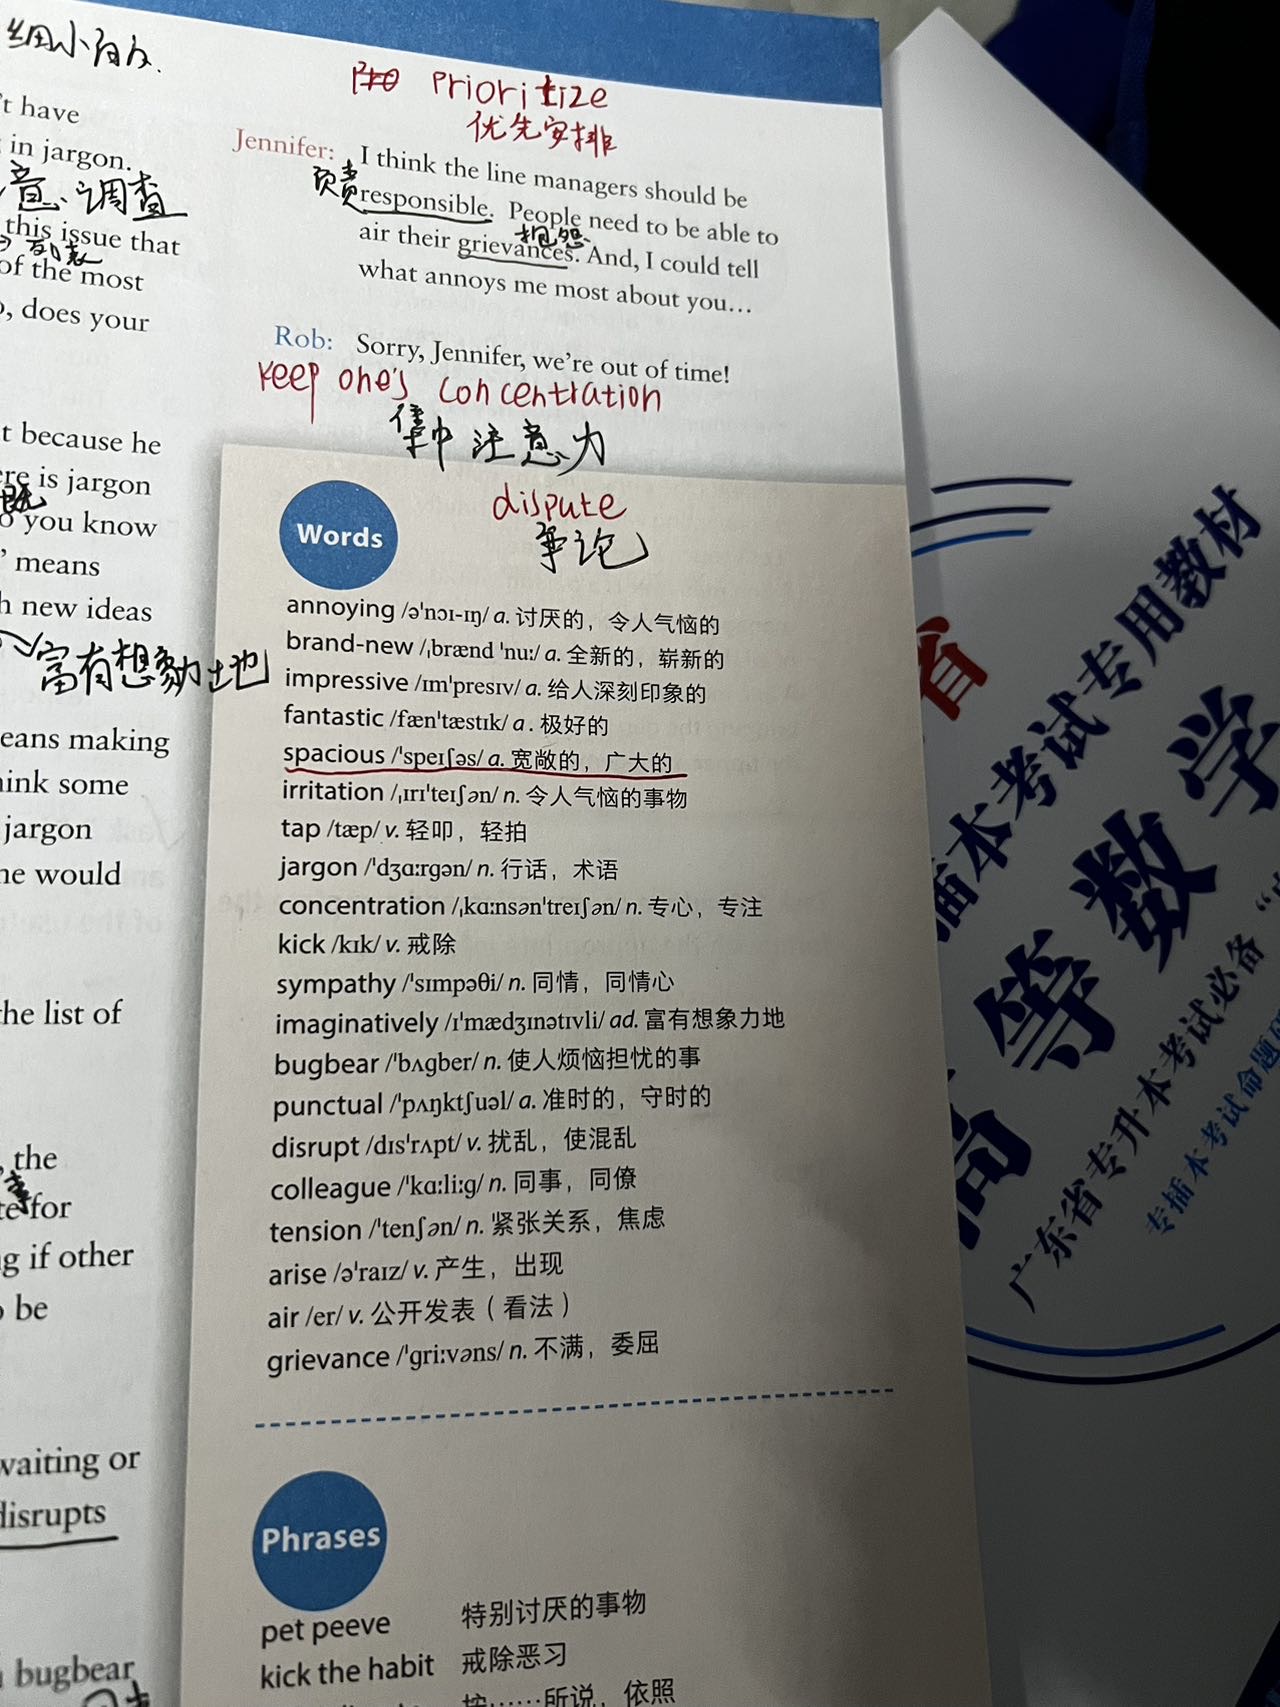 't have
in jargon.
意调查
this issue that
列表
of the most
, does your
t because he
ere is jargon
既
o you know
' means
h new ideas
富有想象力土地
eans making
ink some
jargon
ne would
the list of
, the
for
g if other
be
waiting or
disrupts
bugbear
Prioritize
优先安排
Jennifer: I think the line managers should be
负责
responsible. People need to be able to
抱怨
air their grievances. And, I could tell
what annoys me most about you...
Rob: Sorry, Jennifer, we're out of time!
keep one's concentration
集中注意力
Words
dispute
争论
annoying /ə'nɔɪ-ɪŋ/ a. 讨厌的，令人气恼的
brand-new /ˌbrænd 'nuː/ a. 全新的，崭新的
impressive /ɪm'presɪv/ a. 给人深刻印象的
fantastic /fæn'tæstɪk/ a. 极好的
spacious /'speɪʃəs/ a. 宽敞的，广大的
irritation /ˌɪrɪ'teɪʃən/ n. 令人气恼的事物
tap /tæp/ v. 轻叩，轻拍
jargon /'dʒɑːrgən/ n. 行话，术语
concentration /ˌkɑːnsən'treɪʃən/ n. 专心，专注
kick /kɪk/ v. 戒除
sympathy /'sɪmpəθi/ n. 同情，同情心
imaginatively /ɪ'mædʒɪnətɪvli/ ad. 富有想象力地
bugbear /'bʌgber/ n. 使人烦恼担忧的事
punctual /'pʌŋktʃuəl/ a. 准时的，守时的
disrupt /dɪs'rʌpt/ v. 扰乱，使混乱
colleague /'kɑːliːg/ n. 同事，同僚
tension /'tenʃən/ n. 紧张关系，焦虑
arise /ə'raɪz/ v. 产生，出现
air /er/ v. 公开发表（看法）
grievance /'griːvəns/ n. 不满，委屈
Phrases
pet peeve 特别讨厌的事物
kick the habit 戒除恶习
按……所说，依照
省
插本考试专用教材
高等数学
广东省专升本考试必备
专插本考试命题